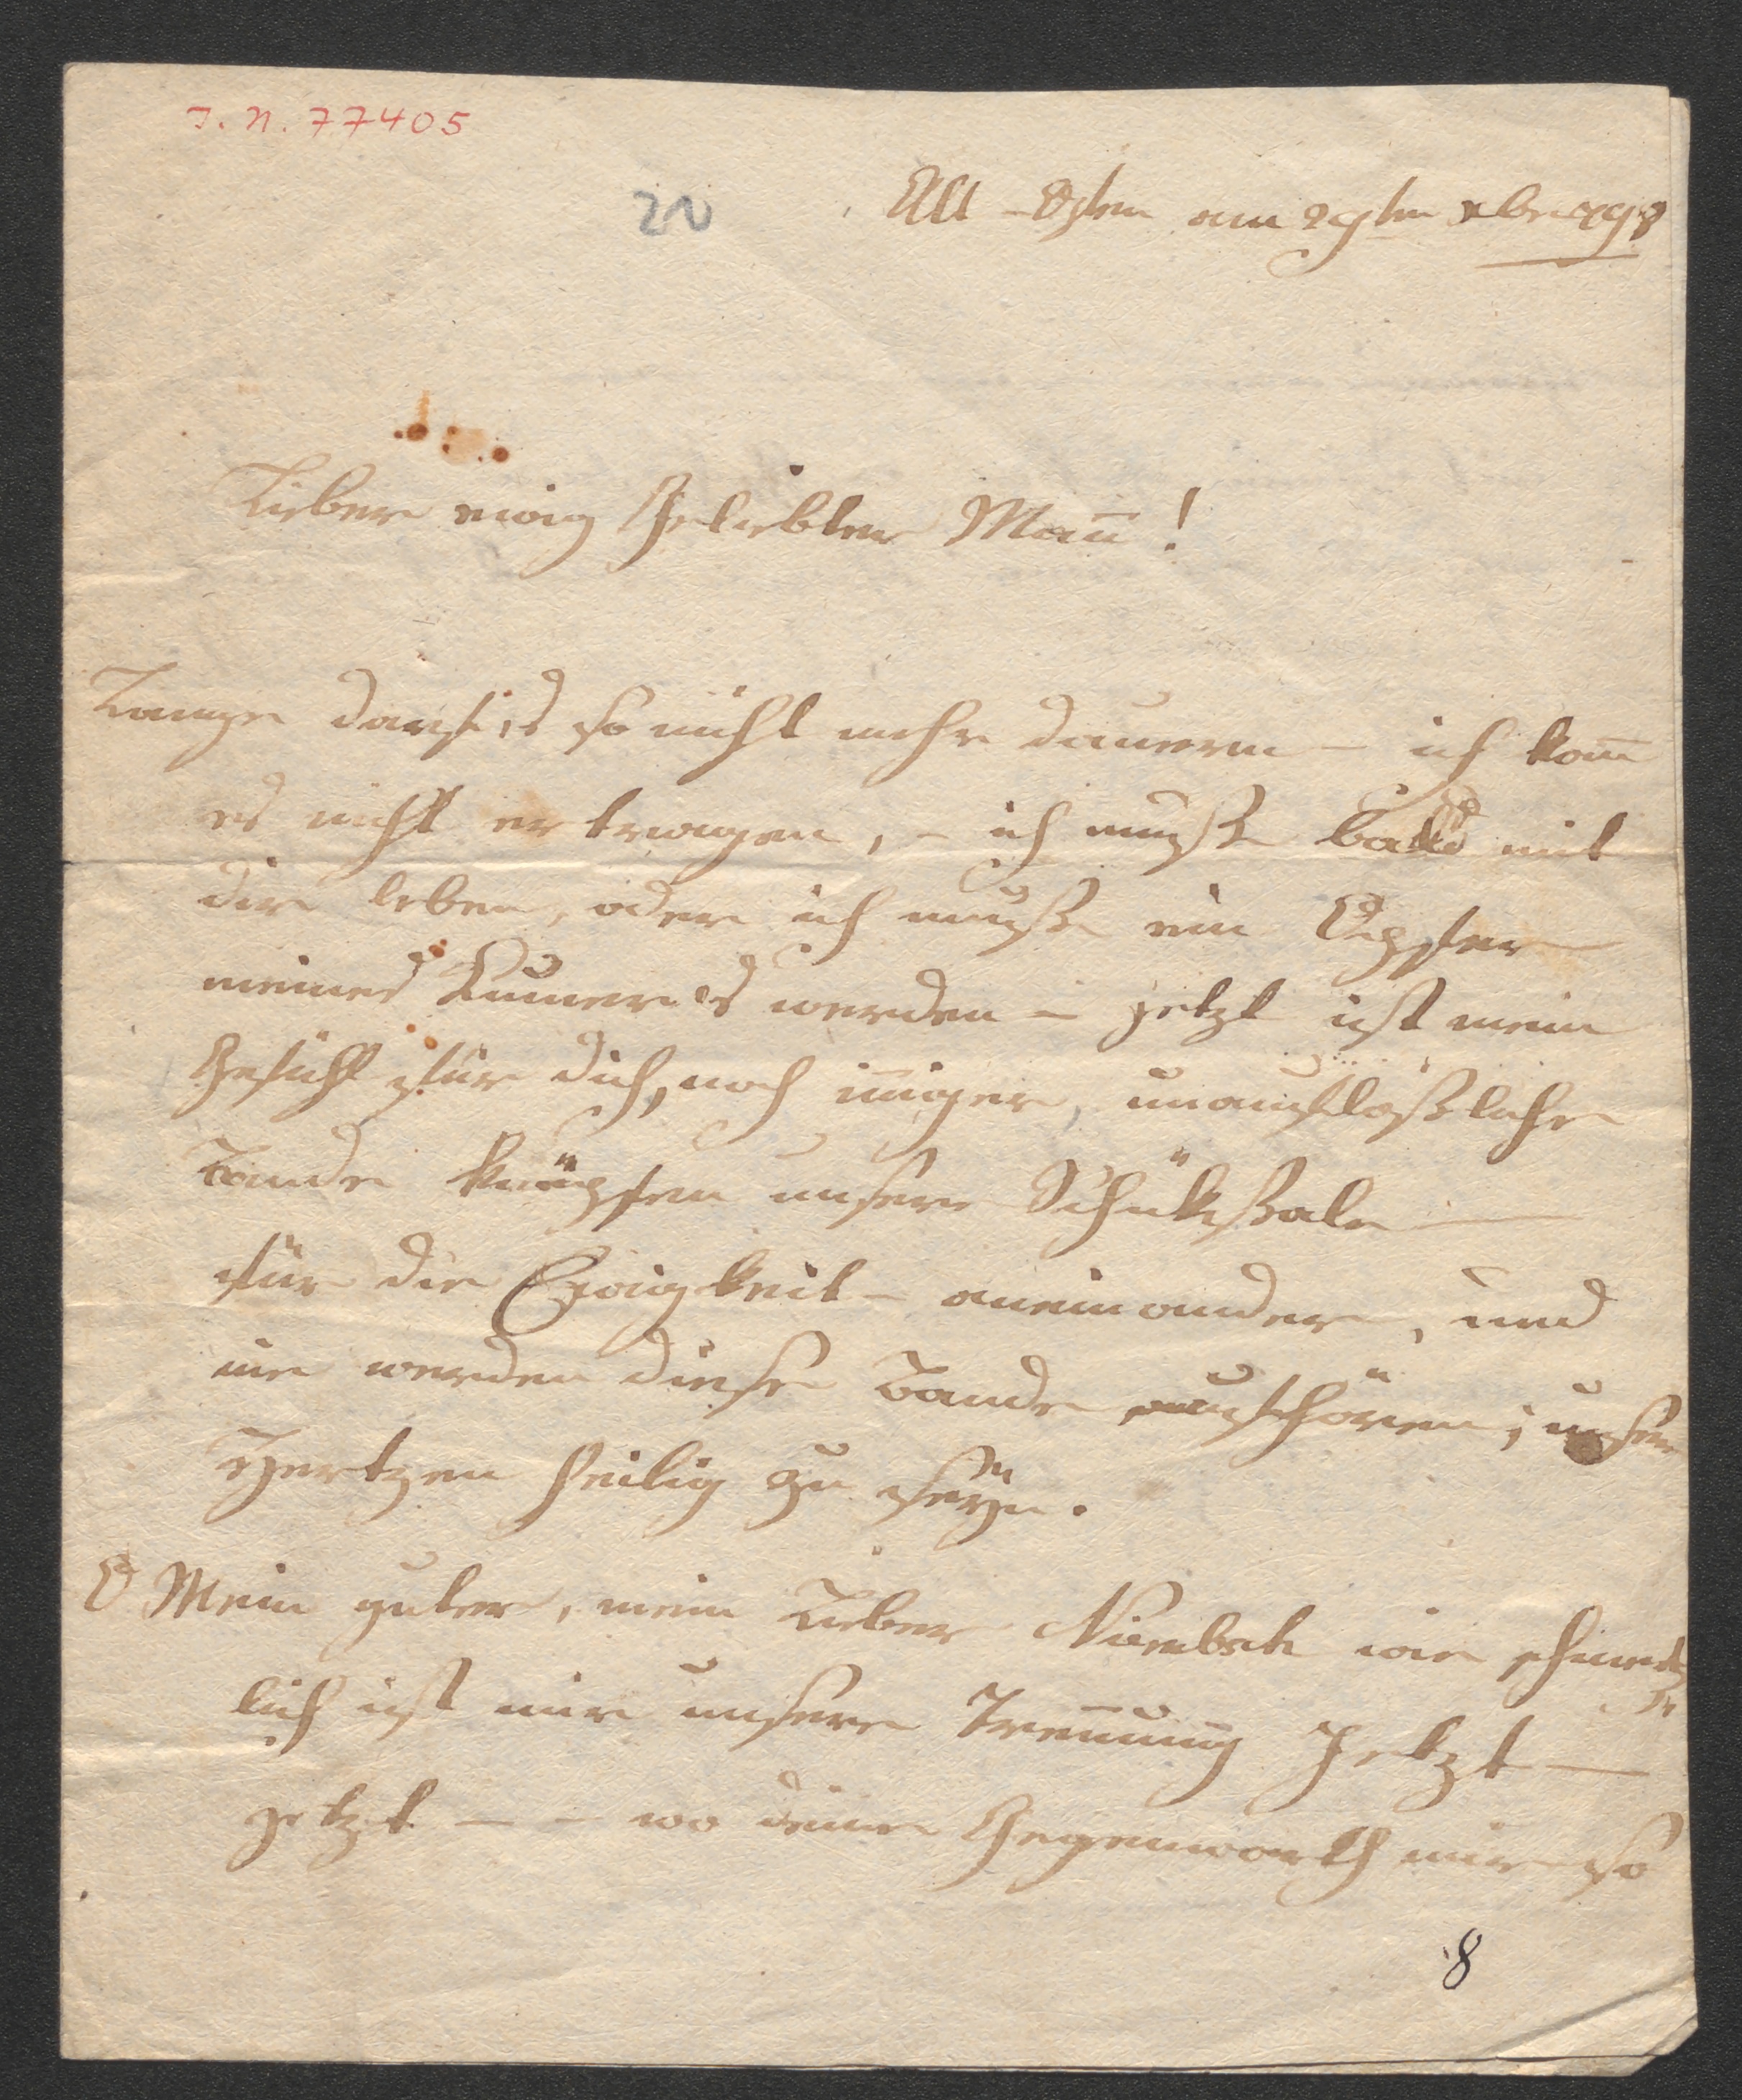 J. N. 77405
20
Alt-Ofen am 29ten xbr 798
Lieber ewig Geliebter Man̅!
Lange darf es so nicht mehr dauern – ich kan̅
es nicht ertragen, – ich muß bald mit
dir leben, oder ich muß ein Opfer
meines Kumers werden – jetzt ist mein
Gefühl für dich, noch in̅iger, unauflößliche
Bande knüpfen unsere Schükßale —
für die Ewigkeit – aneinander, und
nie werden diese Bande aufhören, unsern
Hertzen heilig zu seÿn.
O Mein guter, mein Lieber Niembsch wie schmertz
lich ist mir unsere Tren̅ung Jetzt —
jetzt – – wo deine Gegenwarth mir so
8